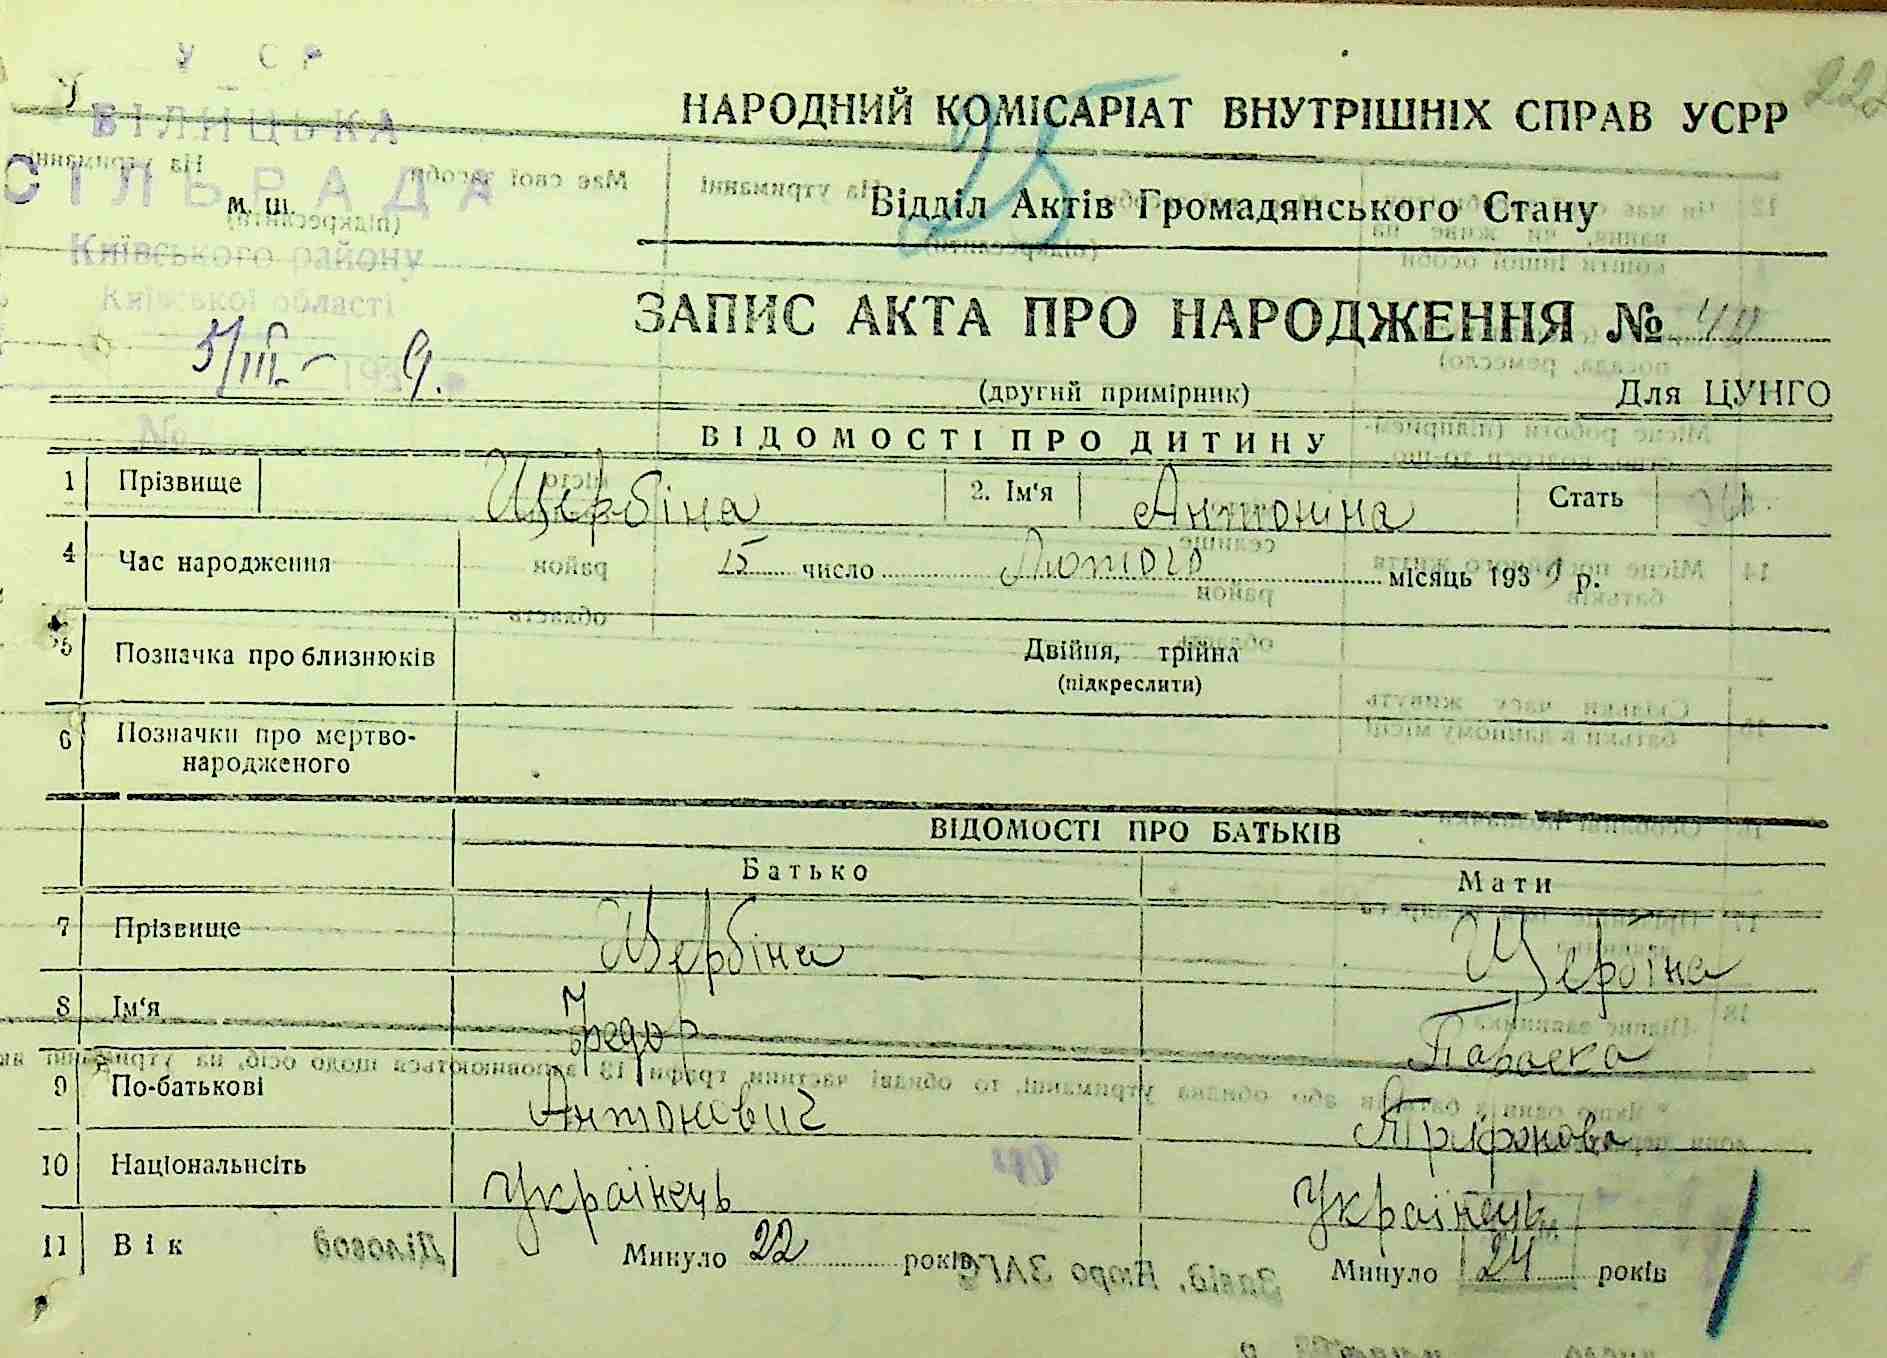 У С Р
БІЛИЦЬКА
СІЛЬРАДА
Київського району
Київської області
м. ш.
5/III - 9.
№
НАРОДНИЙ КОМІСАРІАТ ВНУТРІШНІХ СПРАВ УСРР
25
Відділ Актів Громадянського Стану
ЗАПИС АКТА ПРО НАРОДЖЕННЯ №
(другий примірник) Для ЦУНГО
ВІДОМОСТІ ПРО ДИТИНУ
1 Прізвище Щербіна 2. Ім'я Антонина Стать
4 Час народження 15 число Лютого місяць 1939 р.
5 Позначка про близнюків Двійня, трійня
(підкреслити)
6 Позначки про мертво-
народженого
ВІДОМОСТІ ПРО БАТЬКІВ
Батько Мати
7 Прізвище Щербіна Щербіна
8 Ім'я Федор Параска
9 По-батькові Антонович Тріфонова
10 Національнсіть Украінець Украінець
11 Вік Минуло 22 років Минуло 24 років